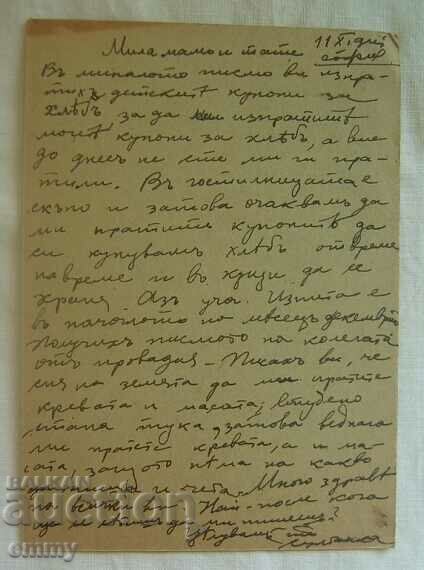 Мила мамо и тате 11 XI
Въ миналото писмо ви изпра-
тихъ детските купони за
хлѣбъ за да ми изпратите
моите купони за хлѣбъ, а вие
до днесъ не сте ми ги пра-
тили. Въ гостилницата е
скъпо и затова очаквамъ да
ми пратите купоните да
си купувамъ хлѣбъ отъ време
на време и въ къщи да се
храня. Азъ уча. Изпита е
въ началото на месецъ декемврий
Получихъ писмото на колегата
отъ Провадия. Писахъ ви, че
спя на земята да ми пратите
кревата и масата; студено
стана тука, затова веднага
ми пратете кревата, а и ма-
сата, защото нѣма на какво
и чета. Много здраве
на всички ви. Най-после кога
ще да ми пишешъ?
Целувамъ
БАЛКАН
АНТИКС
emmy